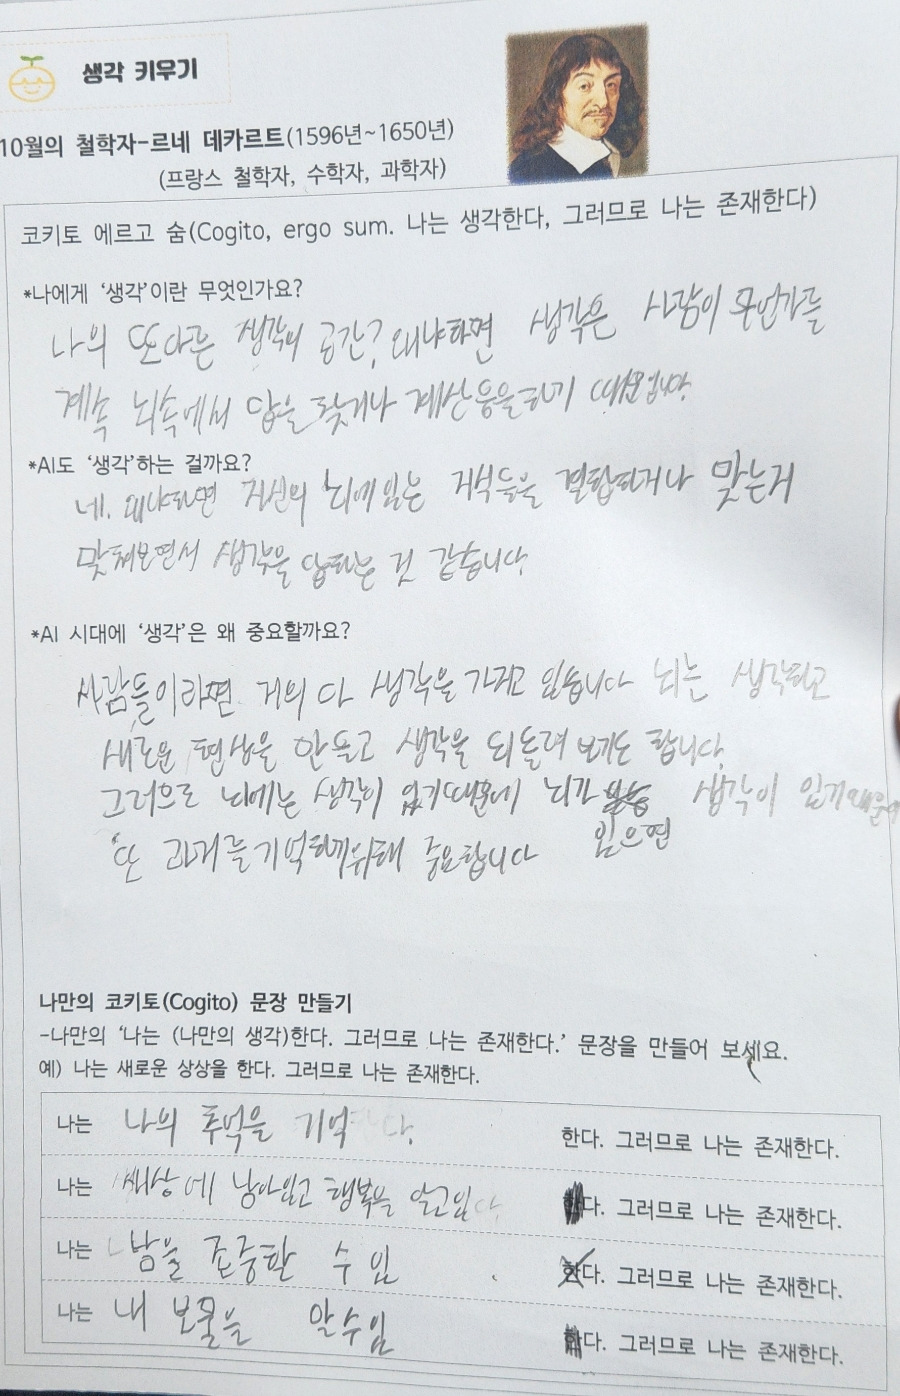 생각 키우기
10월의 철학자-르네 데카르트(1596년~1650년)
(프랑스 철학자, 수학자, 과학자)
코키토 에르고 숨(Cogito, ergo sum. 나는 생각한다, 그러므로 나는 존재한다)
*나에게 '생각'이란 무엇인가요?
나의 또다른 생각의 공간? 왜냐하면 생각은 사람이 무언가를
계속 뇌속에서 답을 찾거나 계산 등을하기 때문입니다.
*AI도 '생각'하는 걸까요?
네. 왜냐하면 자신의 뇌에있는 지식들을 결합하거나 맞는지
맞춰보면서 생각을 하는 것 같습니다.
*AI 시대에 '생각'은 왜 중요할까요?
사람들이라면 거의 다 생각을 가지고 있습니다 뇌는 생각하고
새로운 현상을 만들고 생각을 되돌려 보기도 합니다.
그러므로 뇌에는 생각이 있기때문에 뇌가 생각이 있기때문에
있으면
또 과거를기억하기위해 중요합니다
나만의 코키토(Cogito) 문장 만들기
-나만의 '나는 (나만의 생각)한다. 그러므로 나는 존재한다.' 문장을 만들어 보세요.
예) 나는 새로운 상상을 한다. 그러므로 나는 존재한다.
나는 나의 추억을 기억 한다. 그러므로 나는 존재한다.
나는 세상에 남아있고 행복을 알고있 다. 그러므로 나는 존재한다.
나는 남을 존중할 수 있 다. 그러므로 나는 존재한다.
나는 내 보물을 알수있 다. 그러므로 나는 존재한다.